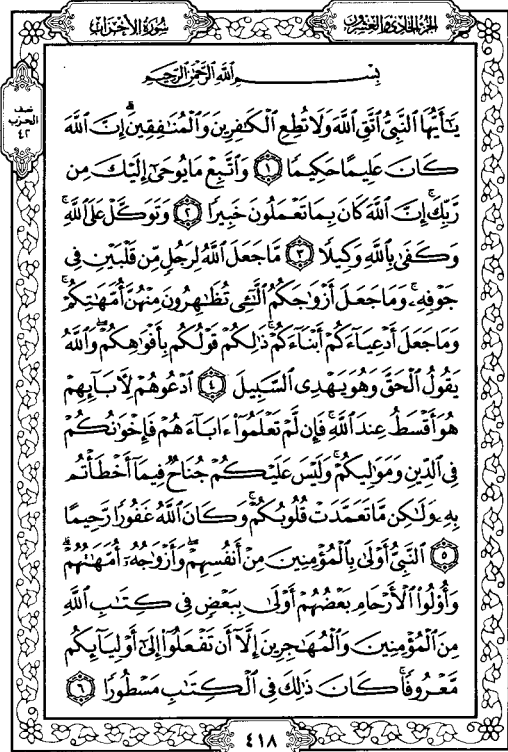 الجزء الحادي والعشرون
سورة الأحزاب
بِسْمِ ٱللَّهِ ٱلرَّحْمَٰنِ ٱلرَّحِيمِ
نصف
الحزب
٤٢
يَٰٓأَيُّهَا ٱلنَّبِىُّ ٱتَّقِ ٱللَّهَ وَلَا تُطِعِ ٱلْكَٰفِرِينَ وَٱلْمُنَٰفِقِينَۗ إِنَّ ٱللَّهَ
كَانَ عَلِيمًا حَكِيمًا ١ وَٱتَّبِعْ مَا يُوحَىٰٓ إِلَيْكَ مِن
رَّبِّكَۚ إِنَّ ٱللَّهَ كَانَ بِمَا تَعْمَلُونَ خَبِيرًا ٢ وَتَوَكَّلْ عَلَى ٱللَّهِۚ
وَكَفَىٰ بِٱللَّهِ وَكِيلًا ٣ مَّا جَعَلَ ٱللَّهُ لِرَجُلٍ مِّن قَلْبَيْنِ فِى
جَوْفِهِۦۚ وَمَا جَعَلَ أَزْوَٰجَكُمُ ٱلَّٰٓـِٔى تُظَٰهِرُونَ مِنْهُنَّ أُمَّهَٰتِكُمْۚ
وَمَا جَعَلَ أَدْعِيَآءَكُمْ أَبْنَآءَكُمْۚ ذَٰلِكُمْ قَوْلُكُم بِأَفْوَٰهِكُمْۖ وَٱللَّهُ
يَقُولُ ٱلْحَقَّ وَهُوَ يَهْدِى ٱلسَّبِيلَ ٤ ٱدْعُوهُمْ لِأَبَآئِهِمْ
هُوَ أَقْسَطُ عِندَ ٱللَّهِۚ فَإِن لَّمْ تَعْلَمُوٓا۟ ءَابَآءَهُمْ فَإِخْوَٰنُكُمْ
فِى ٱلدِّينِ وَمَوَٰلِيكُمْۚ وَلَيْسَ عَلَيْكُمْ جُنَاحٌ فِيمَآ أَخْطَأْتُم
بِهِۦ وَلَٰكِن مَّا تَعَمَّدَتْ قُلُوبُكُمْۚ وَكَانَ ٱللَّهُ غَفُورًا رَّحِيمًا
٥ ٱلنَّبِىُّ أَوْلَىٰ بِٱلْمُؤْمِنِينَ مِنْ أَنفُسِهِمْۖ وَأَزْوَٰجُهُۥٓ أُمَّهَٰتُهُمْۗ
وَأُو۟لُوا۟ ٱلْأَرْحَامِ بَعْضُهُمْ أَوْلَىٰ بِبَعْضٍ فِى كِتَٰبِ ٱللَّهِ
مِنَ ٱلْمُؤْمِنِينَ وَٱلْمُهَٰجِرِينَ إِلَّآ أَن تَفْعَلُوٓا۟ إِلَىٰٓ أَوْلِيَآئِكُم
مَّعْرُوفًاۚ كَانَ ذَٰلِكَ فِى ٱلْكِتَٰبِ مَسْطُورًا ٦
٤١٨